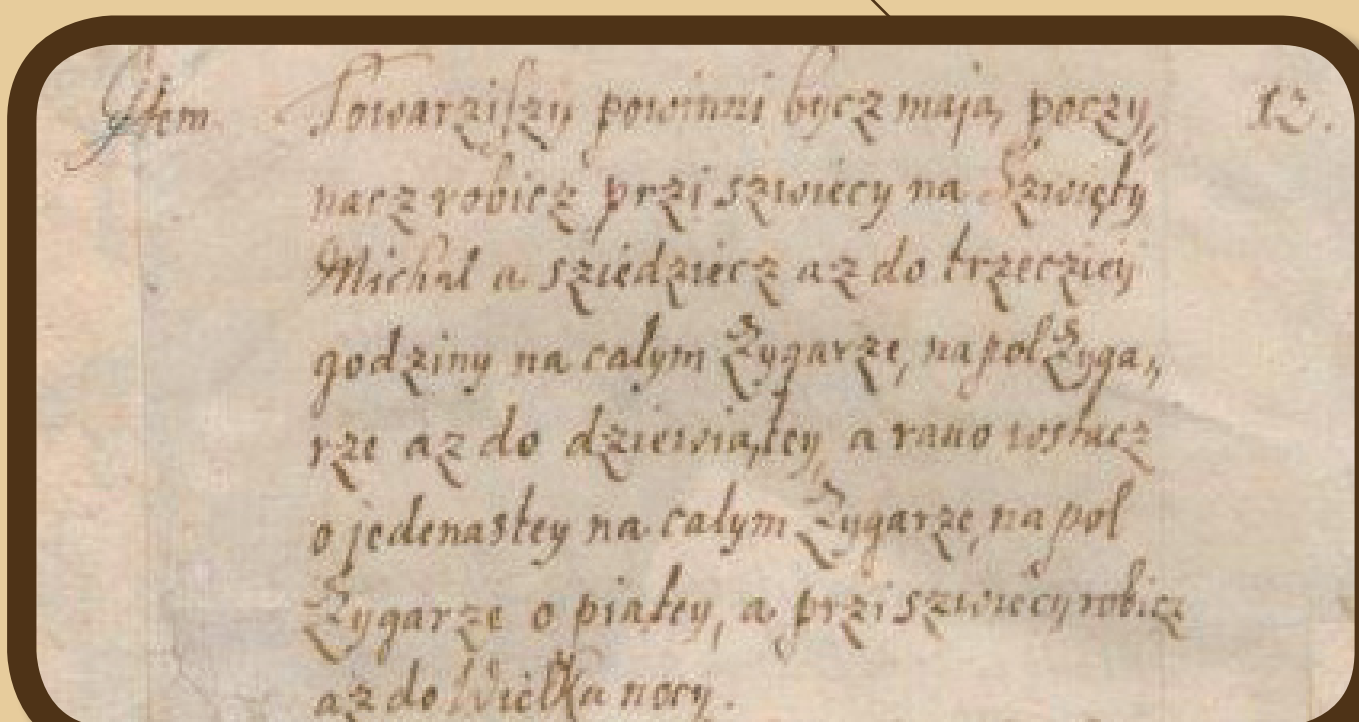 Item. Towarziszy powinni bycz mają poczy, 12.
nacz robicz przi szwiecy na Szwięty
Michal a sziedziecz az do trzecziey
godziny na całym Zygarze, na pol Zyga,,
rze az do dziewiątey, a rano wstacz
o jedenastey na całym Zygarze, na pol
Zygarze o piatey, a przi szwiecy robicz
az do Wielka nocy.